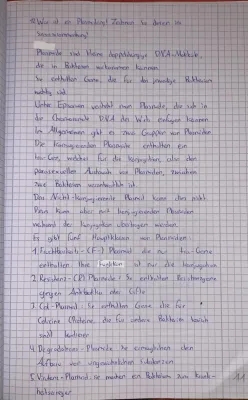 1) Was ist ein Plasmid? Zeichnen Sie diesen im
Zusammenhang!
Plasmide sind kleine doppelsträngige DNA-Moleküle,
die in Bakterien vorkommen können.
Sie enthalten Gene, die für das jeweilige Bakterium
wichtig sind.
Unter Episomen versteht man Plasmide, die sich in
die Chromosomale DNA des Wirts einfügen können.
Im Allgemeinen gibt es zwei Gruppen von Plasmiden.
Die Konjugierenden Plasmide enthalten ein
tra-Gen, welches für die Konjugation, also den
parasexuellen Austausch von Plasmiden, zwischen
zwei Bakterien verantwortlich ist.
Das Nicht-konjugierende Plasmid kann dies nicht.
Diese kann aber mit konjugierenden Plasmiden
während der Konjugation übertragen werden.
Es gibt fünf Hauptklassen von Plasmiden:
1. Fruchtbarkeits-(F-) Plasmid die nur tra-Gene
enthalten. Ihre Funktion ist nur die Konjugation
2. Resistenz-(R) Plasmide. Sie enthalten Resistenzgene
gegen Antibiotika oder Gifte
3. Col-Plasmid. Sie enthalten Gene die für
Colicine (Proteine, die für andere Bakterien toxisch
sind) kodieren
4. Degradations-Plasmide. Sie ermöglichen den
Abbau von ungewöhnlichen Substanzen
5. Virulenz-Plasmid. Sie machen ein Bakterium zum Krank-
heitserreger